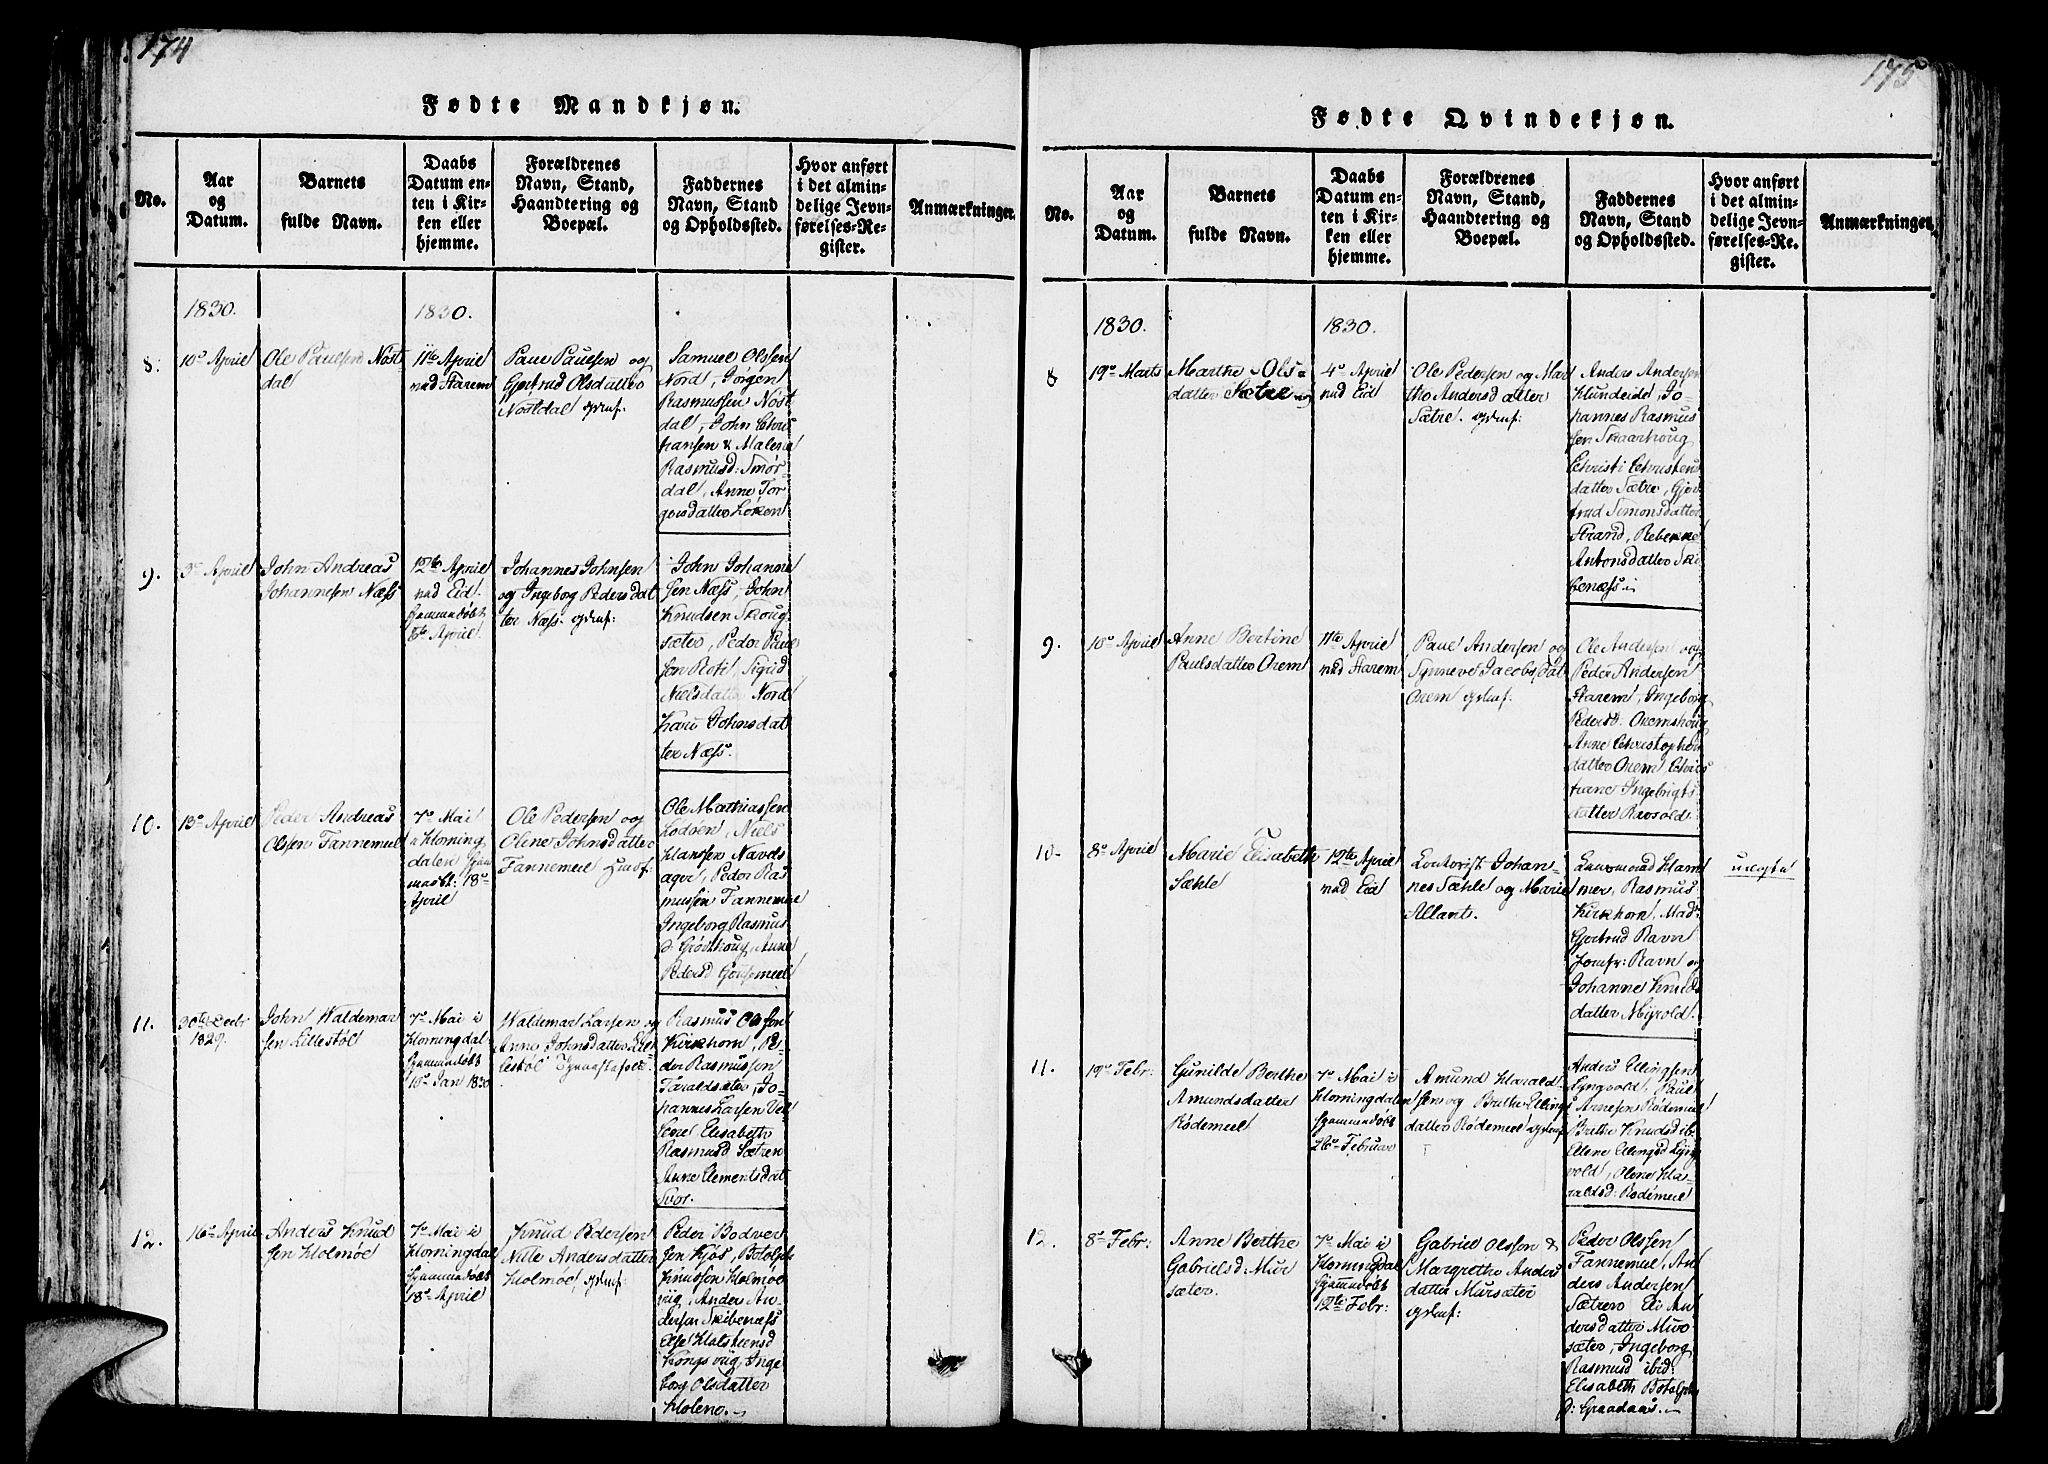 174
Fødte Mandkjøn.
No.
Aar
og
Datum.
Barnets
fulde Navn.
Daabs
Datum en-
ten i Kir-
ken eller
hjemme.
Forældrenes
Navn, Stand,
Haandtering og
Boepæl.
Faddernes
Navn, Stand
og Opholdssted.
Hvor anført
i det almin-
delige Jevn-
førelses-Re-
gister.
Anmærkninger.
1830.
1830.
8.
10de April
Ole Paulsen Nøst
dal
11te April
ved Starem
Paul Paulsen og
Gjertrud Olsdatter
Nøstdal
Samuel Olssen
Nord, Jørgen
Rasmussen Nøst
dal, John Chris
tiansen & Malene
Rasmusd: Smør-
dal, Anne Tor
gersdatter Løken
9.
3de April
John Andreas
Johannesen Næss
12te April
ved Eid.
hjemmedøbt
April.
Johannes Johnsen
og Ingeborg Pedersdat
ter Næss.
John Johanne
sen Næss, John
Knudsen Skoug
sæter, Peder Paul
sen Roti, Sigrid
Nielsdatter Nord
Kari Johnsdat
ter Næss.
10.
13de April
Peder Andreas
Olsen Tannemeel
7de Mai
i Horning
dalen
18de
April
Ole Pedersen og
Olene Johnsdatter
Tannemeel
Ole Mathiassen
Lødøen, Niels
Hanssen Navels
ager, Peder Ras
mussen Tannemeel
Ingeborg Rasmus
d. Grødthoug, Anne
Pedersd
11.
30te Decbr
1829.
John Waldemar
sen Lillestøl
7de Mai i
Horningdal
hjemmedøbt
10de Jan 1830
Waldemar Larsen og
Anne Johnsdatter Lil
lestøl
Rasmus Olsson
Kirkhorn, Pe-
der Rasmussen
Taraldsæter, Jo-
hannes Larsen
Elisabeth
Rasmusd Sætren
Anne Clementsdat
Svor.
12.
16de April
Anders Knud
sen Holmøe
7de Mai i
Horningdal
hjemmedøbt
18de April
Knud Pedersen
Nille Andersdatter
Holmøe,
Peder Bodver
sen Kjøs, Botolph
Knussen Holmøe
viig, Ander An-
dersen Skibenæss
Else
Kongsviig, Inge
borg Olsdatter
Holene.
175
Fødte Qvindekjøn.
No.
Aar
og
Datum.
Barnets
fulde Navn.
Daabs
Datum en-
ten i Kir-
ken eller
hjemme.
Forældrenes
Navn, Stand,
Haandtering og
Boepæl.
Faddernes
Navn, Stand
og Opholdssted.
Hvor anført
i det almin-
delige Jevn-
førelses-Re-
gister.
Anmærkninger.
1830.
1830.
8
19de Marts
Marthe Ols-
datter Sætre
4de April
ved Eid
Ole Pedersen og Mar
the Andersdatter
Sætre.
Anders Andersen
Hundeide, Jo-
hannes Rasmus
sen Skaarhoug
Christi Christens
datter Sætre, Gjer
trud Simonsdatter
Strand, Rebekke
Antonsdatter Ski
benæss
9.
10de April
Anne Bertine
Paulsdatter Orem
11te April
ved Starem
Paul Andersen og
Synneve Jacobsdat
Orem
Ole Andersen og
Peder Andersen
Starem, Ingeborg
Pedersd. Oremshoug
Anne Christophers
datter Orem, Chris
tiane Ingebrigts
datter Ravsold
10-
8de April
Marie Elisabeth
Sæhle
12te April
ved Eid
Johan-
nes Sæhle og Marie
Allant.
Ham
mer, Rasmus
Kirkhorn, Mad.
Gjertrud Ravn
Jomfr: Ravn og
Johanne Knuds
datter Myrold
11.
19de Febr:
Gunilde Berthe
Amundsdatter
Rødemeel
7de Mai i
Horningdalen
hjemmedøbt
26de Februar
Amund Harald
sen og Brithe Ellings
datter Rødemeel
Anders Ellingsen
Lyngvold, Paul
Arnesen Rødemeel
Brithe Knudsd ib:
Elene Ellingsd Lyng
vold, Olene Ha-
raldsd: Rødemeel
12.
8de Febr:
Anne Berthe
Gabrielsd. Mur
sæter.
7de Mai i
Horningdal
hjemmedøbt
12te Febr:
Gabriel Olsson &
Margrethe Anders
datter Mursæter
Peder Olssen
Tannemeel, An
ders Andersen
Sætren Eli An
dersdatter Mur
sæter, Ingeborg
Rasmusd ibid:
Elisabeth Botolph
d: Graadaas.